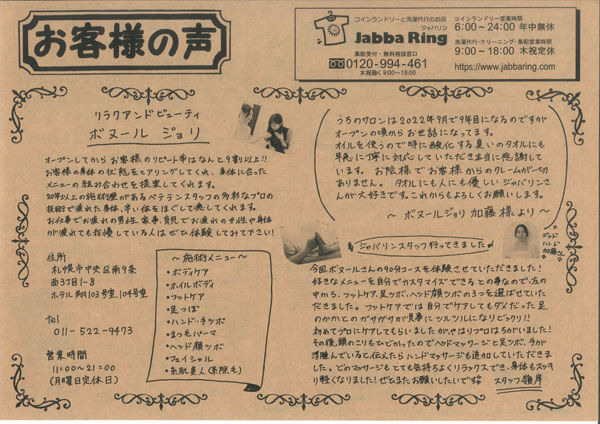 お客様の声
コインランドリーと洗濯代行のお店
ジャバリン
Jabba Ring
集配受付・無料相談窓口
0120-994-461
木祝除く9:00〜18:00
コインランドリー営業時間
6:00〜24:00 年中無休
洗濯代行・クリーニング・集配営業時間
9:00〜18:00 木祝定休
https://www.jabbaring.com
リラクアンドビューティ
ボヌール ジョリ
オープンしてから お客様のリピート率はなんと9割以上!!
お客様の身体の状態をヒアリングしてくれ、身体に合った
メニューの組み合わせを提案してくれます。
20年以上の施術経験があるベテランスタッフの多彩なプロの
技術で疲れた身体、辛い体をほぐして癒してくれます。
お仕事でお疲れの男性、家事、育児でお疲れの女性や身体
が疲れても我慢している人はぜひ体験してみて下さい!
住所
札幌市中央区南9条
西3丁目1-8
ホテル翔103号室、104号室
Tel
011-522-9473
営業時間
11:00〜21:00
(月曜日定休日)
〜施術メニュー〜
・ボディケア
・オイルボディ
・フットケア
・足つぼ
・ハンド・手ツボ
・まつ毛パーマ
・ヘッド顔ツボ
・フェイシャル
・糸肌美人(糸除毛)
うちのサロンは2022年9月で9年目になるのですが
オープンの頃からお世話になってます。
オイルを使うので時に酸化する臭いのタオルにも
早急に丁寧に対応していただき本当に感謝してい
ます。お陰様でお客様からのクレームが一切
ありません。タオルにも人にも優しいジャバリンさん
が大好きです。これからもよろしくお願いします。
〜ボヌールジョリ 加藤様より〜
ゴッド
ハンド
加藤
ジャバリンスタッフ行ってきました
今回ボヌールさんの90分コースを体験させていただきました!
好きなメニューを自分でカスタマイズできるとの事なので、左の
中から、フットケア、足ツボ、ヘッド顔ツボの3つを選ばせていた
だきました。フットケアでは自分でケアしてもダメだった足
のかかとのガサガサが見事にツルツルになりビックリ!!
初めてプロにケアしてもらいましたが、やはりプロはちがいました!
その後、頭のこりもひどかったのでヘッドマッサージと足ツボ、手が
浮腫んでいると伝えたらハンドマッサージも追加していただきまし
た。どのマッサージもとても気持ちよくリラックスでき、身体もスッキ
リ軽くなりました!ぜひまたお願いしたいです
スタッフ 嶺岸